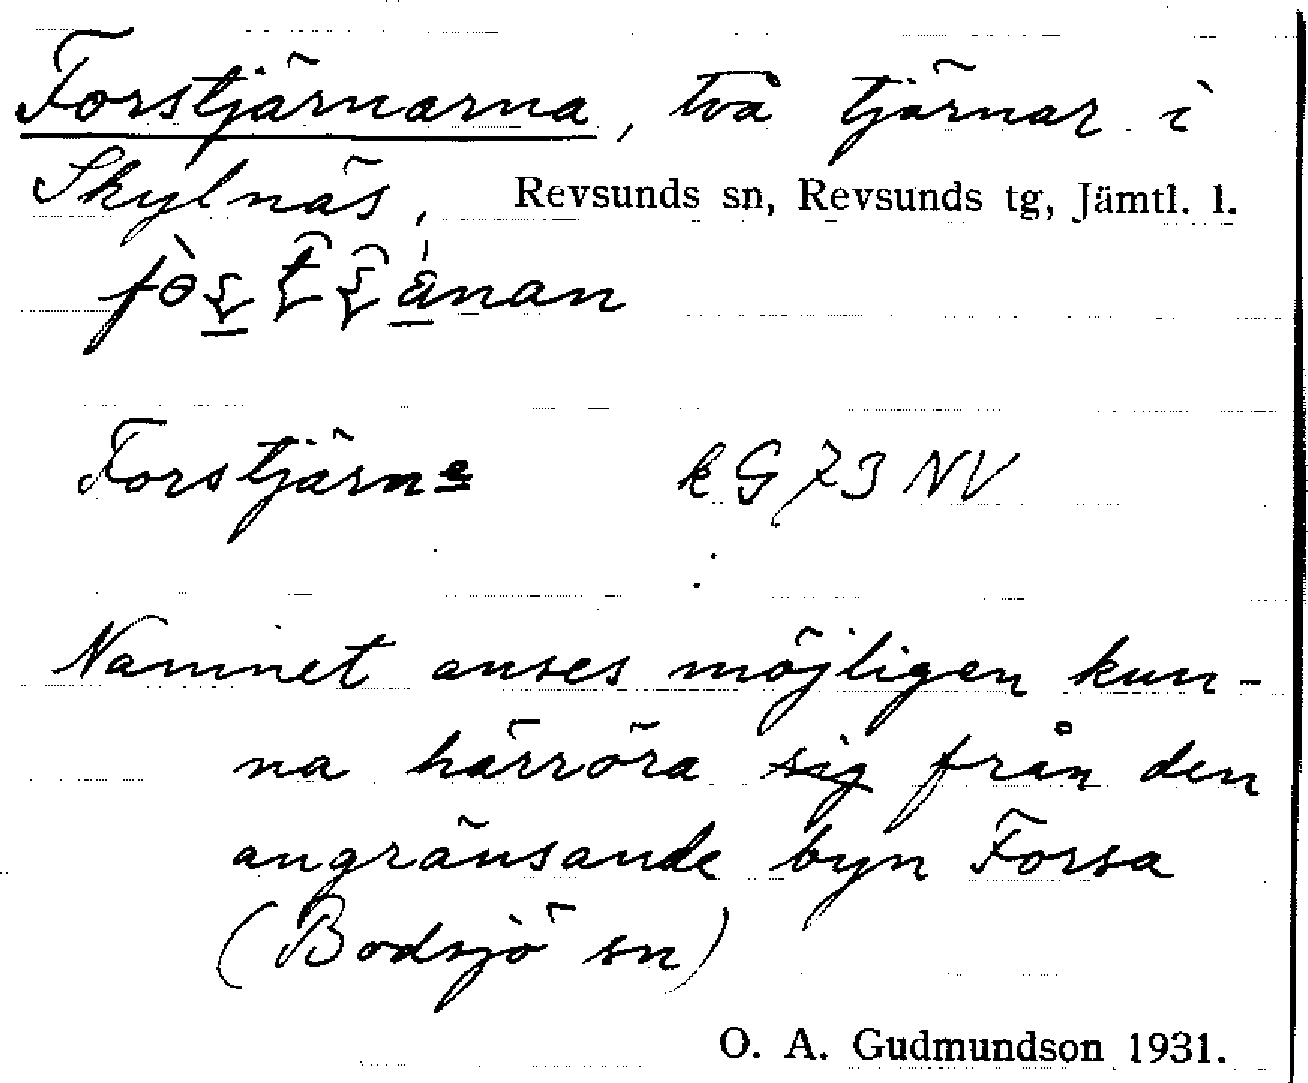 Forstjärnarna, två tjärnar i
Skylnäs, Revsunds sn, Revsunds tg, Jämtl. l.
Forstjärne kG73NV
Namnet anses möjligen kun-
na härröra sig från den
angränsande byn Forsa
(Bodsjö sn)
O. A. Gudmundson 1931.